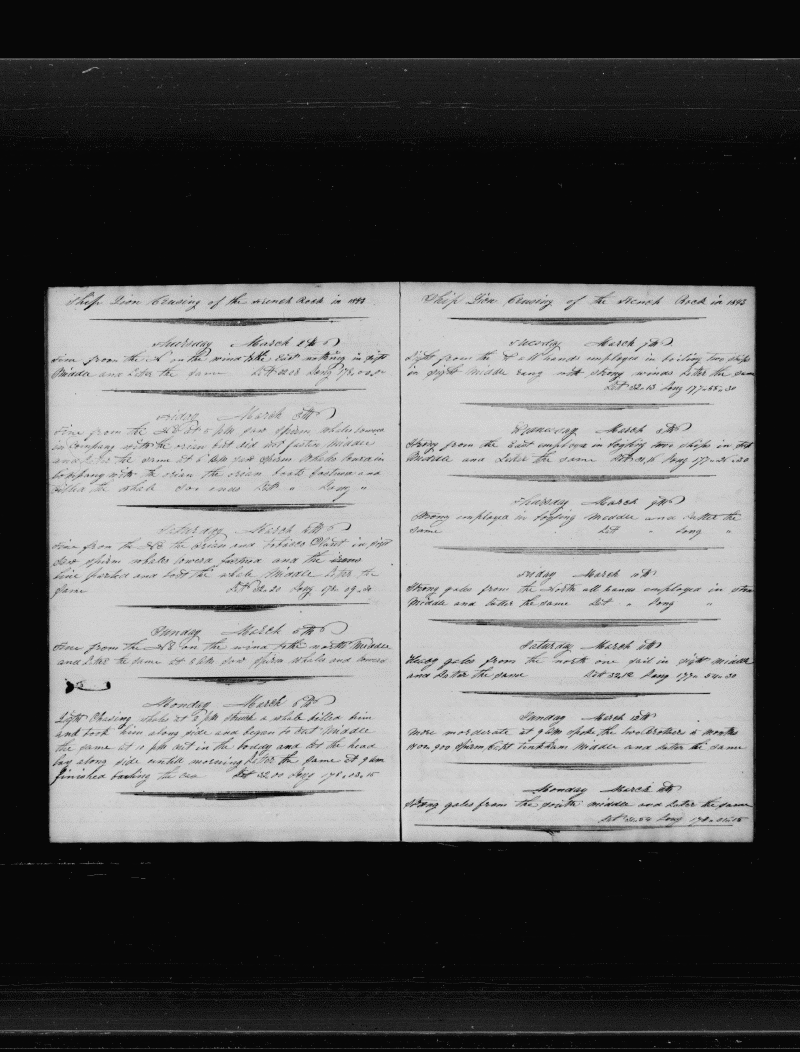 Ship Lion Crusing of the French Rock in 1843
Thursday March 2th
Fine from the N on the wind to the East nothing in sight
Middle and Later the same Lat 32.03 Long 178
Friday March 3th
Fine from the NE at 5 pm saw sperm whales lowered
in Company with the orian but did not fasten Middle
and Later the same at 6 saw Sperm Whales lowered in
Company with the orian the orian boats fastened and
killed the whale So ends Lat " Long "
Saturday March 4th
Fine from the NE the orian and in sight
saw sperm whales lowered fastened and the
line parted and lost the whale Middle Later the
same Lat 32.20 Long 178
Sunday March 5th
Fine from the NE on the wind to the north Middle
and Later the same at saw Sperm whales and lowered
Monday March 6th
Light Chasing whales at 3 pm struck a whale killed him
and took him along side and began to cut Middle
the same at 10 pm cut in the boddy and let the head
lay along side until morning Later the same at 9 am
finished the Lat 32.00 Long 178.03.15
Ship Lion Crusing of the French Rock in 1843
Tuesday March 7th
Light from the all hands employed in boiling two ships
in sight Middle strong winds Later the same
Lat 32.13 Long 177.55.30
March 8th
Strong from the East employed in boiling two ships in
Middle and Later the same Lat Long 177
Thursday March 9th
Strong employed in Middle and Latter the
same Lat " Long "
Friday March 10th
Strong gales from the North all hands employed in
Middle and Latter the same Lat " Long "
Saturday March 11th
Heavy gales from the north one sail in sight middle
and Later the same Lat 32.12 Long 177.54.30
Sunday March 12th
More morderate at 9 am spoke the two Brothers 15 months
900 Sperm Middle and latter the same
Monday March
Strong gales from the middle and Later the same
Lat Long 178